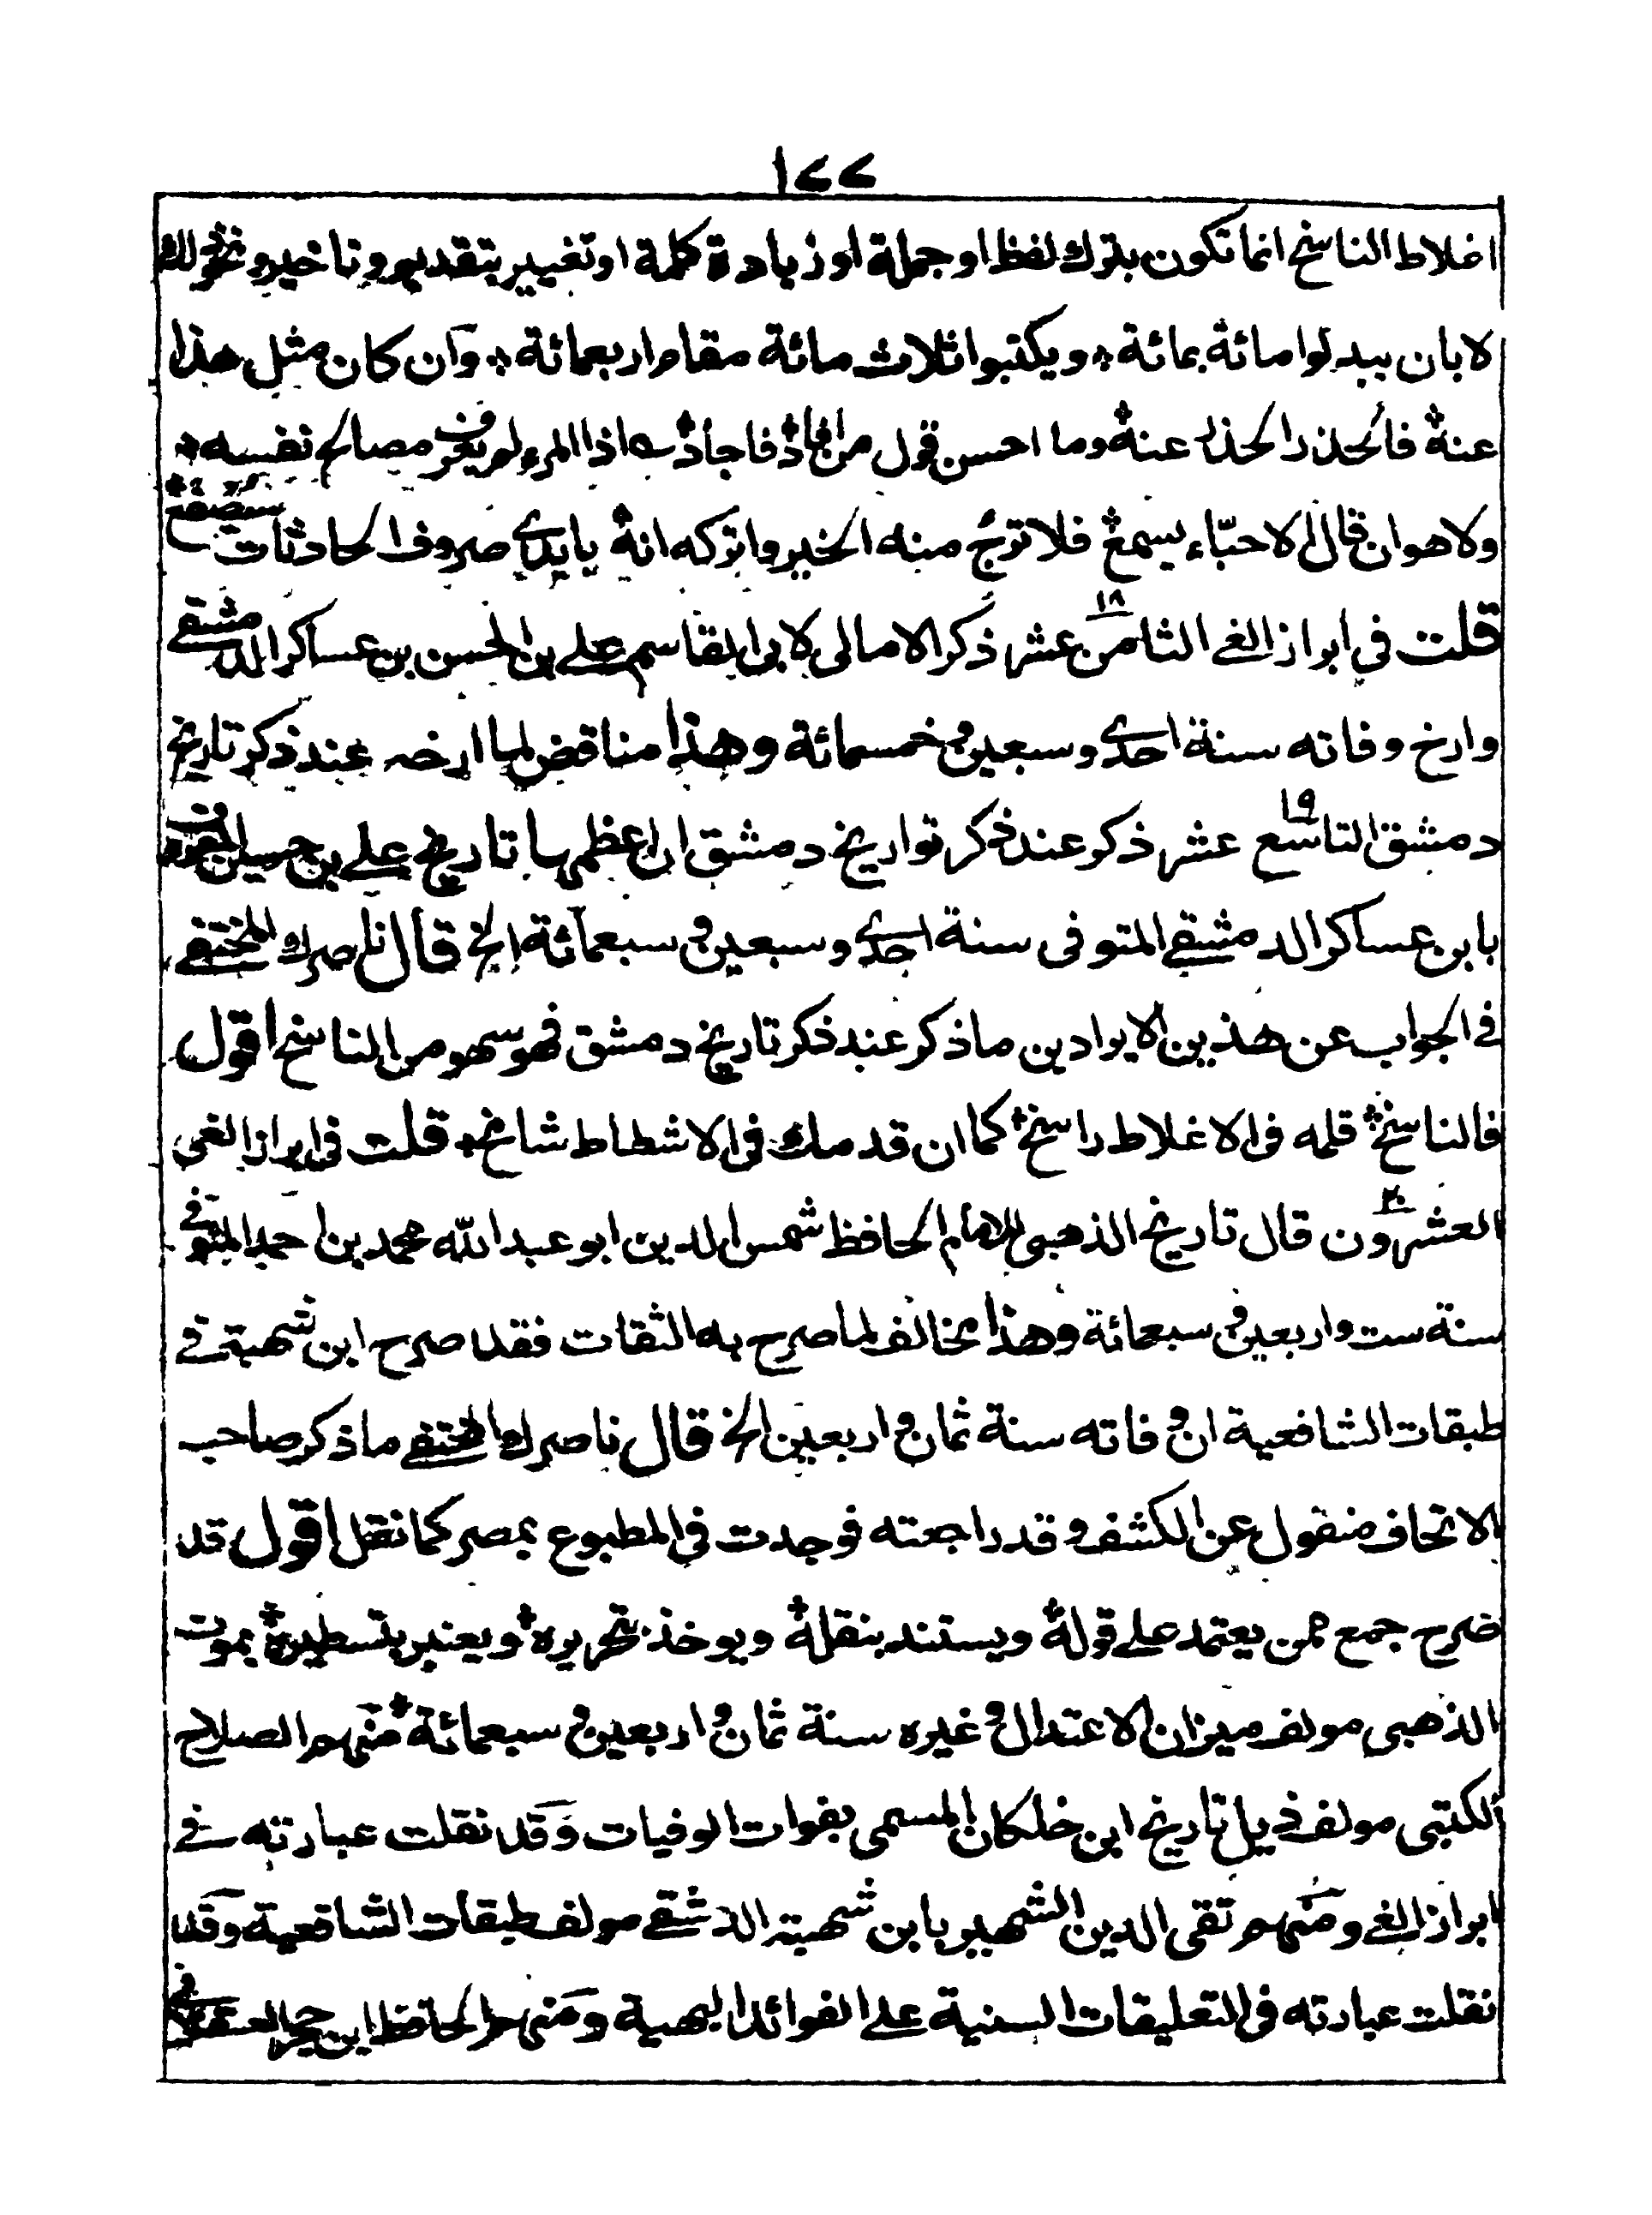 ١٧٧
اغلاط الناسخ انما تكون بترك لفظ او جملة او زيادة كلمة او تغيير بتقديم و تاخير و نحو ذلك
لا بان يبدلوا مائة بمائة ٭ و يكتبوا ثلاث مائة مقام اربعمائة ٭ وان كان مثل هذا
عنهٗ فالحذر الحذر عنهٗ وما احسن قول من افاد فاجاد اذا المرء لم يعرف مصالح نفسه ٭
ولا هو ان قال الاحبّاء يسمع فلا ترجُ منه الخير و اتركه انهٗ بايدي صروف الحادثات سيصفع
قلت في ابراز الغي الثامن ١٨ عشر ذكر الامالى لابى القاسم على بن الحسن بن عساكر الدمشقي
وارخ وفاته سنة احدى وسبعين و خمسمائة وهذا مناقض لما ارخه عند ذكر تاريخ
دمشق التاسع ١٩ عشر ذكر عند ذكر تواريخ دمشق ان اعظمها تاريخ على بن حسين المعروف
بابن عساكر الدمشقي المتوفى سنة احدى وسبعين و سبعمائة الخ قال ناصرك المختفي
في الجواب عن هذين الايرادين ما ذكر عند ذكر تاريخ دمشق فهو سهو من الناسخ اقول
فالناسخ قلمه في الاغلاط راسخ كما ان قدمك في الاشطاط شامخ ٭ قلت في ابراز الغي
العشرون ٢٠ قال تاريخ الذهبي للامام الحافظ شمس الدين ابو عبد الله محمد بن احمد المتوفي
سنة ست واربعين و سبعمائة وهذا مخالف لما صرح به الثقات فقد صرح ابن شهبة في
طبقات الشافعية ان وفاته سنة ثمان و اربعين الخ قال ناصرك المختفي ما ذكر صاحب
الاتحاف منقول عن الكشف و قد راجعته فوجدت في المطبوع بمصر كما نقل اقول قد
صرح جمع ممن يعتمد على قولهٗ ويستند بنقلهٗ ويوخذ بتحريره و يعتبر بتسطيره بموت
الذهبي مولف ميزان الاعتدال و غيره سنة ثمان و اربعين و سبعمائة منهم الصلاح
الكتبي مولف ذيل تاريخ ابن خلكان المسمى بفوات الوفيات وقد نقلت عبارته في
ابراز الغي ومنهم تقى الدين الشهير بابن شهبة الدمشقي مولف طبقات الشافعية وقد
نقلت عبارته في التعليقات السنية على الفوائد البهية ومنهم الحافظ ابن حجر العسقلاني